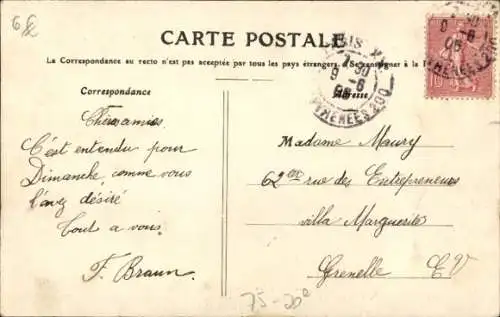 6 E
CARTE POSTALE
La Correspondance au recto n'est pas acceptée par tous les pays étrangers. (Se renseigner à la
PARIS
7 30
9 - 6
06
PYRENEES (20e)
10
Correspondance
Adresse
Chers amies
C'est entendu pour
Dimanche comme vous
l'avez désiré
Tout a vous
F. Braun
Madame Maury
62 rue des Entrepreneurs
villa Marguerite
Grenelle EV
75-20e